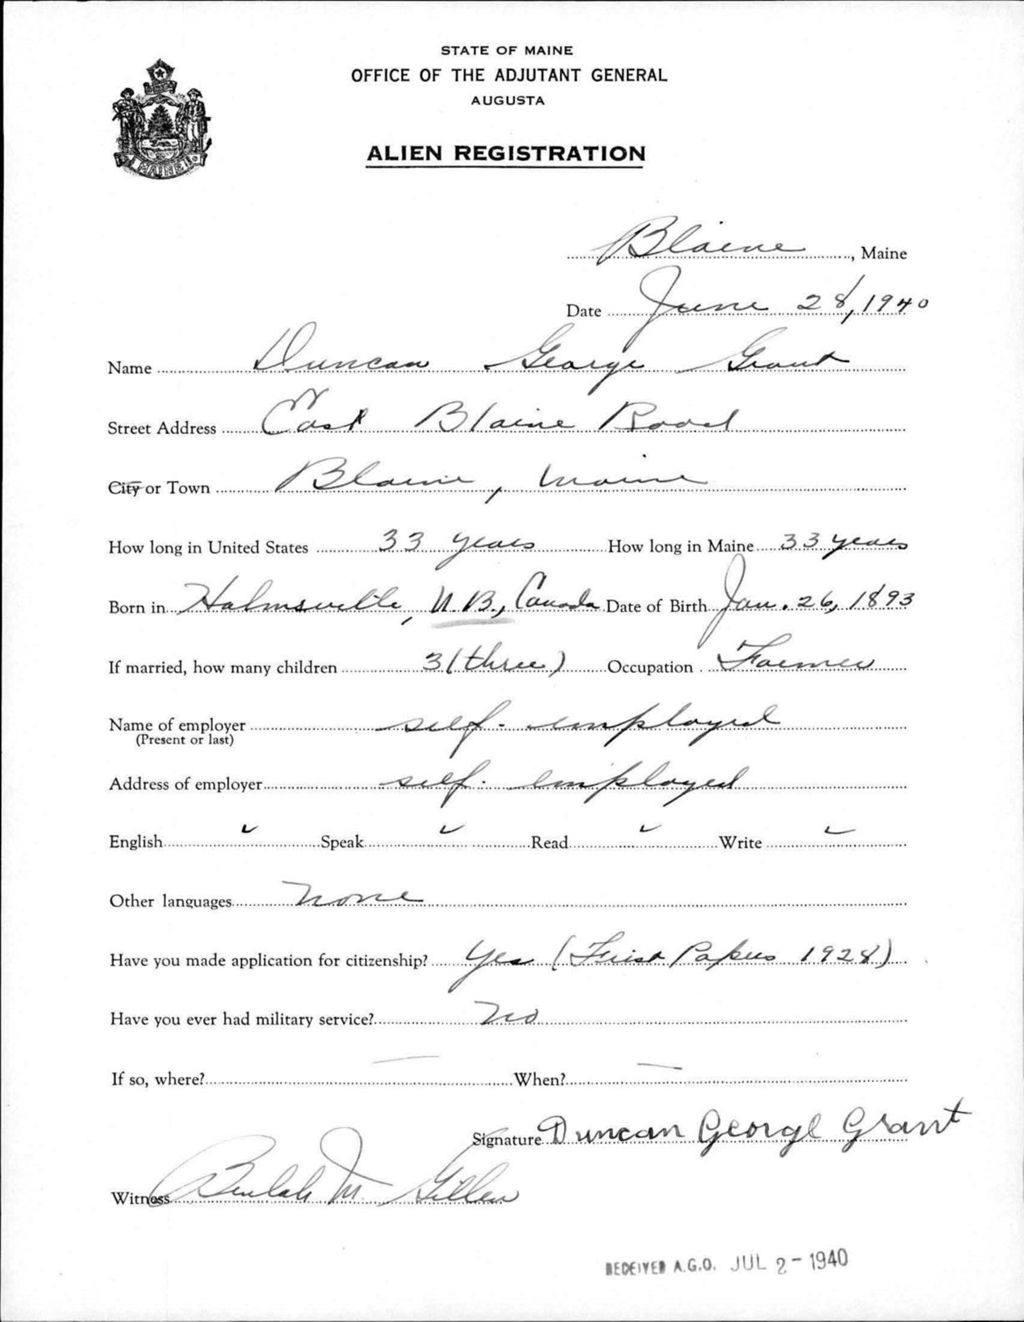 STATE OF MAINE
OFFICE OF THE ADJUTANT GENERAL
AUGUSTA
ALIEN REGISTRATION
Blaine, Maine
Date June 28, 1940
Name Duncan George Grant
Street Address East Blaine Road
City or Town Blaine, Maine
How long in United States 33 years How long in Maine 33 years
Born in Holmsville, N.B., Canada Date of Birth Jan. 26, 1893
If married, how many children 3 (three) Occupation Farmer
Name of employer self-employed
(Present or last)
Address of employer self-employed
English ✓ Speak ✓ Read ✓ Write ✓
Other languages none
Have you made application for citizenship? Yes (First Papers 1928)
Have you ever had military service? No
If so, where? — When? —
Signature Duncan George Grant
Witness Beulah M. Gillen
RECEIVED A.G.O. JUL 2 - 1940